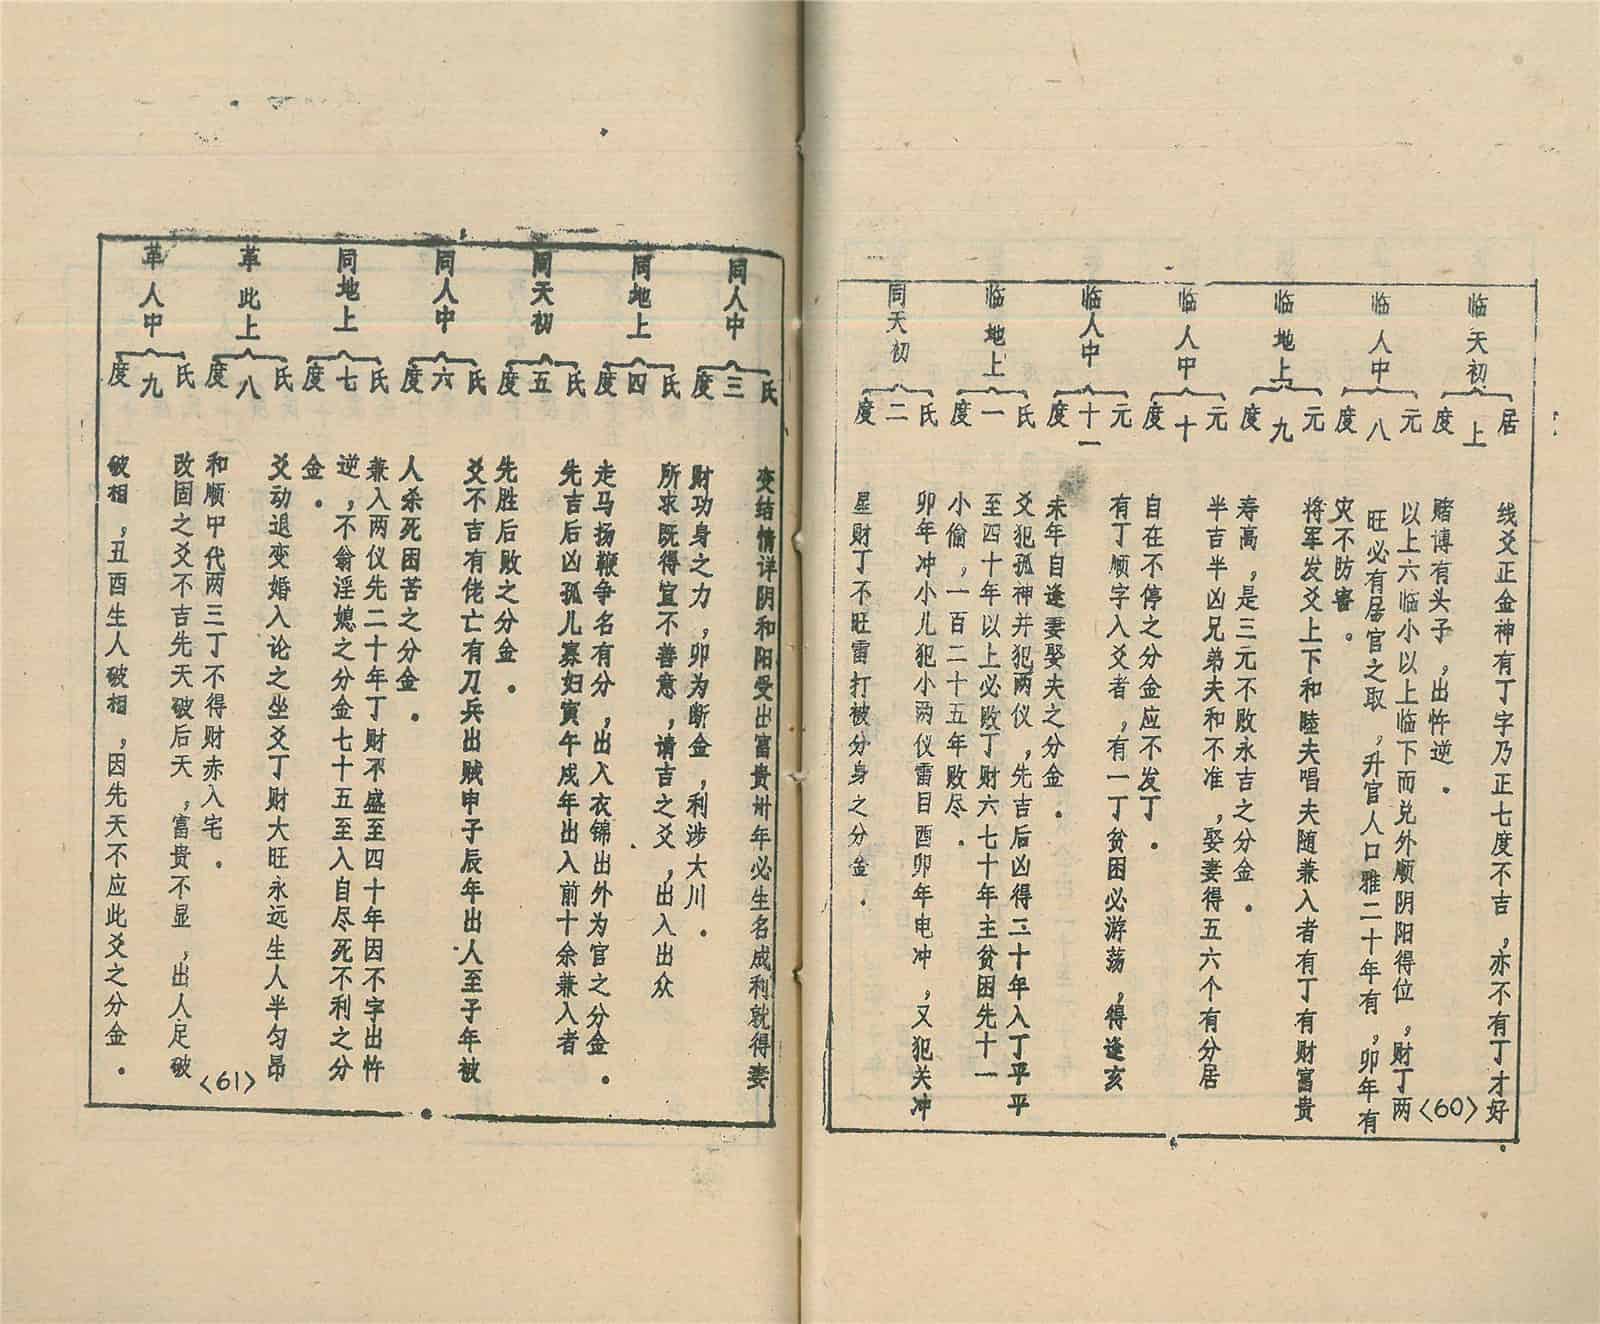 临天初
居上度
线爻正金神有丁字乃正七度不吉，亦不有丁才好．
赌博有头子，出忤逆．
临人中
元八度
以上六临小以上临下而兑外顺阴阳得位，财丁两
旺必有居官之取，升官人口雅二十年有，卯年有
灾不防害．
临地上
元九度
将军发爻上下和睦夫唱夫随兼入者有丁有财富贵
寿高，是三元不败永吉之分金．
临人中
元十度
半吉半凶兄弟夫和不准，娶妻得五六个有分居
自在不停之分金应不发丁．
临人中
元十一度
有丁顺字入爻者，有一丁贫困必游荡，得逢亥
未年自逢妻娶夫之分金．
临地上
氐一度
爻犯孤神并犯两仪，先吉后凶得三十年入丁平平
至四十年以上必败丁财六七十年主贫困先十一
小偷，一百二十五年败尽．
同天初
氐二度
卯年冲小儿犯小两仪雷目酉卯年电冲，又犯关冲
星财丁不旺雷打被分身之分金．
〈60〉
同人中
氐三度
变结情详阴和阳受出富贵卅年必生名成利就得妻
财功身之力，卯为断金，利涉大川．
同地上
氐四度
所求既得宜不善意，请吉之爻，出入出众
走马扬鞭争名有分，出入衣锦出外为官之分金．
同天初
氐五度
先吉后凶孤儿寡妇寅午戌年出入前十余兼入者
先胜后败之分金．
同人中
氐六度
爻不吉有佬亡有刀兵出贼申子辰年出人至子年被
人杀死困苦之分金．
同地上
氐七度
兼入两仪先二十年丁财不盛至四十年因不字出忤
逆，不翁淫媳之分金七十五至入自尽死不利之分
金．
革此上
氐八度
爻动退变婚入论之坐爻丁财大旺永远生人半匀昂
和顺中代两三丁不得财赤入宅．
革人中
氐九度
改固之爻不吉先天破后天，富贵不显，出人足破
破相，丑酉生人破相，因先天不应此爻之分金．
〈61〉